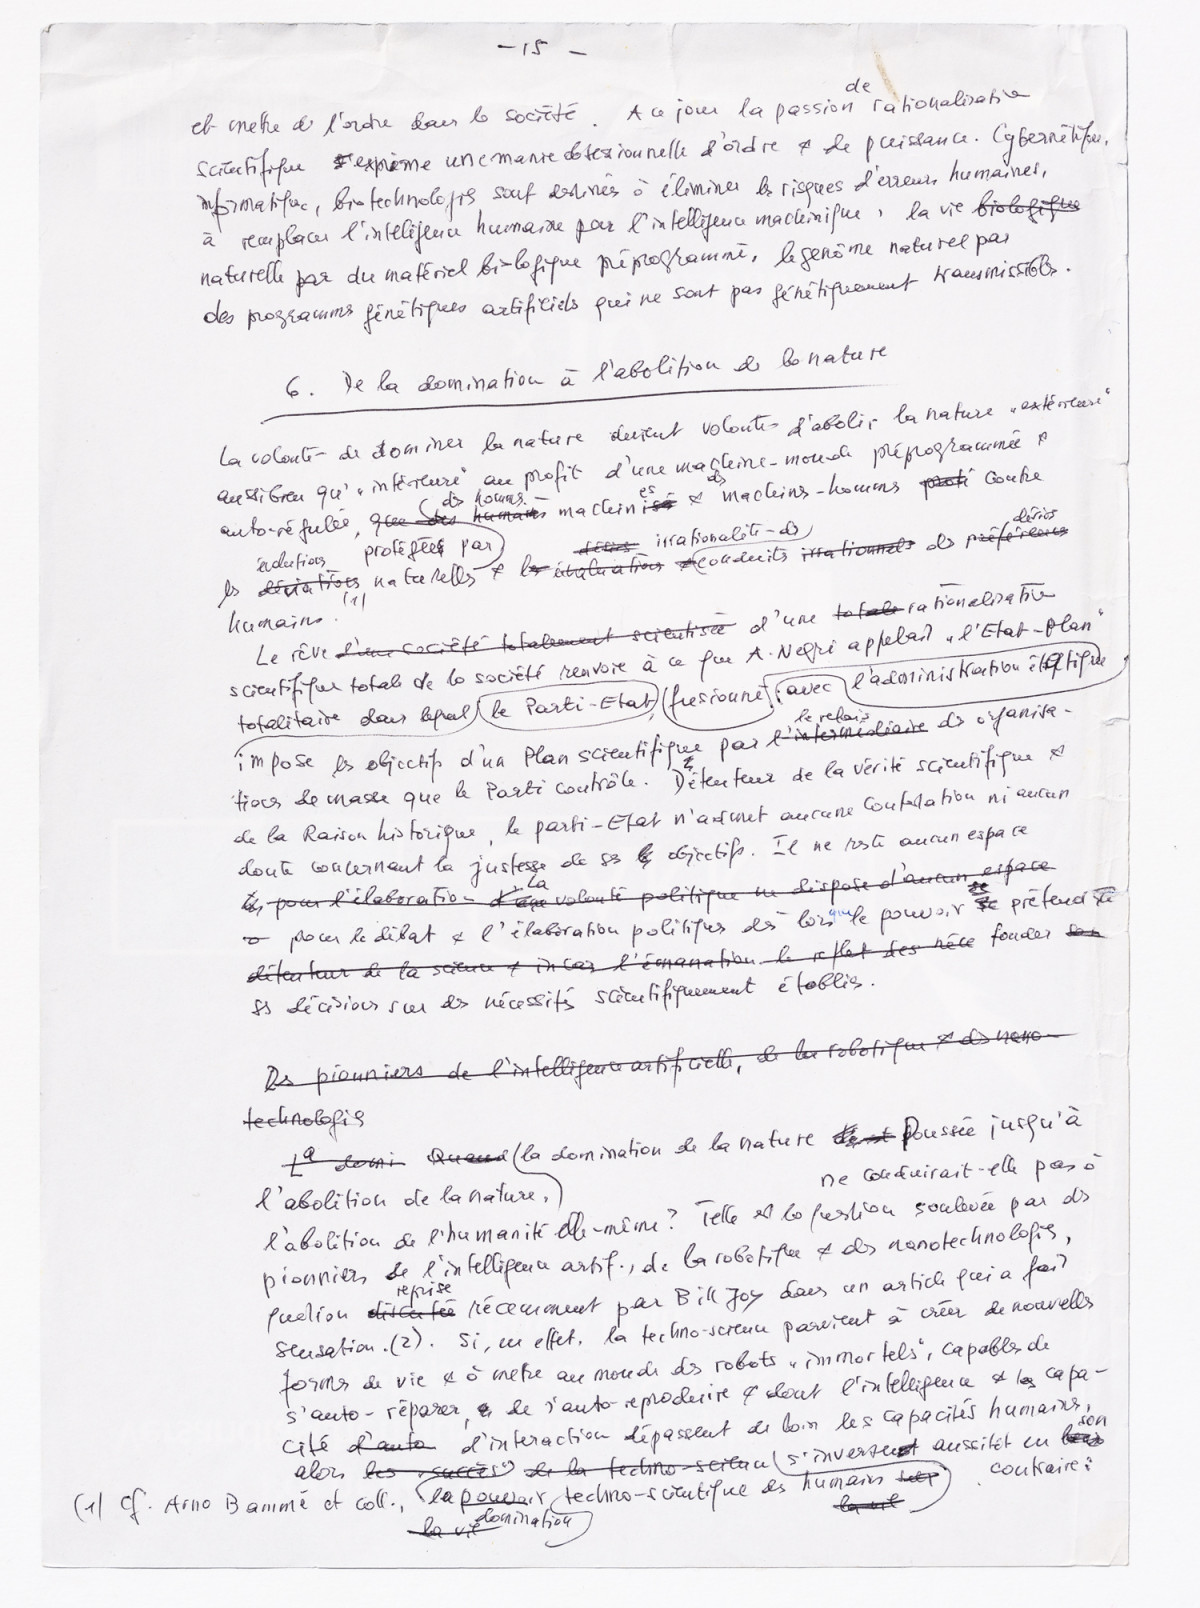 - 15 -
de
et mettre de l'ordre dans la société. A ce jour la passion rationalisation
scientifique exprime une manie obsessionnelle d'ordre & de puissance. Cybernétique,
informatique, biotechnologies sont destinées à éliminer les risques d'erreurs humaines,
à remplacer l'intelligence humaine par l'intelligence machinique, la vie biologique
naturelle par du matériel biologique préprogrammé, le génôme naturel par
des programmes génétiques artificiels qui ne sont pas génétiquement transmissibles.
6. De la domination à l'abolition de la nature
La volonté de dominer la nature devient volonté d'abolir la nature "extérieure"
aussi bien qu' "intérieure" au profit d'une machine-monde préprogrammée &
des hommes es des
auto-régulée, que des humains machinisé & machines-hommes contre
évolutions protégées par irrationalité des désirs
les déviations naturelles & les évaluations & conduits irrationnels des préférences
humains. (1)
Le rêve d'une société totalement scientisée d'une totale rationalisation
scientifique totale de la société renvoie à ce que A. Negri appelait "l'Etat-Plan"
totalitaire dans lequel le Parti-Etat, fusionné avec l'administration étatique
le relais
impose les objectifs d'un Plan scientifique par l'intermédiaire des organisa-
tions de masse que le Parti contrôle. Détenteur de la vérité scientifique &
de la Raison historique, le parti-Etat n'admet aucune contestation ni aucun
doute concernant la justesse de ses objectifs. Il ne reste aucun espace
la
pour l'élaboration volonté politique ne dispose d'aucun espace
pour le débat & l'élaboration politiques dès lors que le pouvoir prétend
détenteur de la science & l'émanation le reflet des néce fonder
ses décisions sur des nécessités scientifiquement établies.
Des pionniers de l'intelligence artificielle, de la robotique & des nano-
technologies
La domi Quand la domination de la nature poussée jusqu'à
l'abolition de la nature, ne conduirait-elle pas à
l'abolition de l'humanité elle-même? Telle est la question soulevée par des
pionniers de l'intelligence artif., de la robotique & des nanotechnologies,
reprise
question discutée récemment par Bill Joy dans un article qui a fait
sensation. (2). Si, en effet, la techno-science parvient à créer de nouvelles
formes de vie & à mettre au monde des robots "immortels", capables de
s'auto-réparer, de s'auto-reproduire & dont l'intelligence & les capa-
cité d'auto d'interaction dépassent de loin les capacités humaines,
son
alors les succès de la techno-science s'inversent aussitôt en contraire:
(1) Cf. Arno Bammé et coll., la pouvoir techno-scientifique des humains
la vie domination la vie